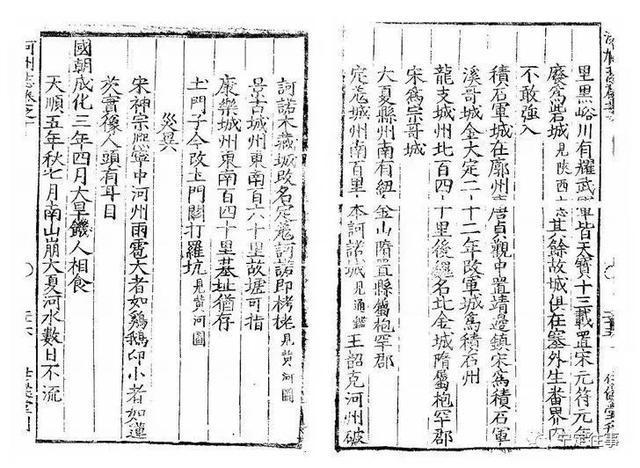 里黑峪川有耀武軍皆天寶十三載置宋元符元年
廢爲砦城見陝西志其餘故城俱在塞外生番界內
不敢強入
積石軍城在廓州唐貞觀中置靖邊鎮宋爲積石軍
溪哥城金大定二十二年改軍城爲積石州
龍支城州北百四十里後魏名北金城隋屬枹罕郡
宋爲宗哥城
大夏縣州南有紐金山隋置縣屬枹罕郡
定羗城州南百里本訶諾城見通鑑王韶克河州破
訶諾木藏城改名定羗訶諾即栲栳見黃河圖
景古城州東南百六十里故壚可指
康樂城州東南百四十里基址猶存
土門子今改土門關打羅坑見黃河圖
災異
宋神宗熙寧中河州雨雹大者如鷄鵝卵小者如蓮
茨實像人頭有耳目
國朝成化三年四月大旱饑人相食
天順五年秋七月南山崩大夏河水數日不流
河州志卷之一